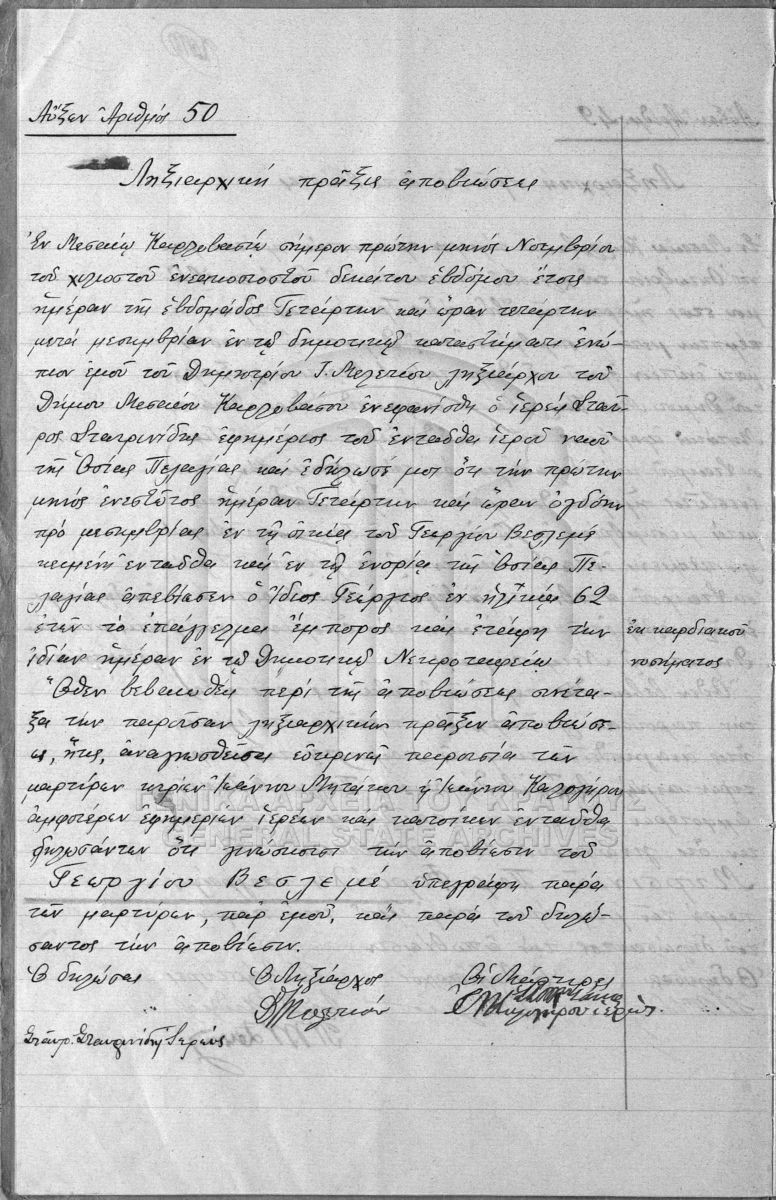 Αὔξων Ἀριθμός 50
Ληξιαρχική πρᾶξις ἀποβιώσεως
Ἐν Μεσαίῳ Καρλοβασίῳ σήμερον πρώτην μηνός Νοεμβρίου
τοῦ χιλιοστοῦ ἐνεακοσιοστοῦ δεκάτου ἑβδόμου ἔτους
ἡμέραν τῆς ἑβδομάδος Τετάρτην καί ὥραν τετάρτην
μετά μεσημβρίαν ἐν τῷ δημοτικῷ καταστήματι ἐνώ-
πιον ἐμοῦ τοῦ Δημητρίου Ι. Μελετίου ληξιάρχου τοῦ
Δήμου Μεσαίου Καρλοβάσου ἐνεφανίσθη ὁ ἱερεύς Σταῦ-
ρος Σταυρινίδης ἐφημέριος τοῦ ἐνταῦθα ἱεροῦ ναοῦ
τῆς Ὁσίας Πελαγίας καί ἐδήλωσέ μοι ὅτι τήν πρώτην
μηνός ἐνεστῶτος ἡμέραν Τετάρτην καί ὥραν ὀγδόην
πρό μεσημβρίας ἐν τῇ οἰκίᾳ τοῦ Γεωργίου Βεσλεμέ
κειμένῃ ἐνταῦθα καί ἐν τῇ ἐνορίᾳ τῆς Ὁσίας Πε-
λαγίας ἀπεβίωσεν ὁ ἴδιος Γεώργιος ἐν ἡλικίᾳ 62
ἐτῶν τό ἐπάγγελμα ἔμπορος καί ἐτάφη τήν
ἰδίαν ἡμέραν ἐν τῷ Δημοτικῷ Νεκροταφείῳ
ἐκ καρδιακοῦ
νοσήματος
Ὅθεν βεβαιωθείς περί τῆς ἀποβιώσεως συνέτα-
ξα τήν παροῦσαν ληξιαρχικήν πρᾶξιν ἀποβιώσε-
ως, ἥτις, ἀναγνωσθεῖσα εὐκρινῶς παρουσίᾳ τῶν
μαρτύρων κυρίων Ἰωάννου Μηταίκου ἤ Ἰωάννου Καλογήρου
ἀμφοτέρων ἐφημερίων ἱερέων καί κατοίκων ἐνταῦθα
δηλωσάντων ὅτι γνώσκουσι τήν ἀποβίωσιν τοῦ
Γεωργίου Βεσλεμέ ὑπεγράφη παρά
τῶν μαρτύρων, παρ' ἐμοῦ, καί παρά τοῦ δηλώ-
σαντος τήν ἀποβίωσιν.
Ὁ δηλώσας Ὁ Ληξίαρχος Οἱ Μάρτυρες
Σταυρ. Σταυρινίδης Ἱερεύς
ΓΕΝΙΚΑ ΑΡΧΕΙΑ ΤΟΥ ΚΡΑΤΟΥΣ
GENERAL STATE ARCHIVES